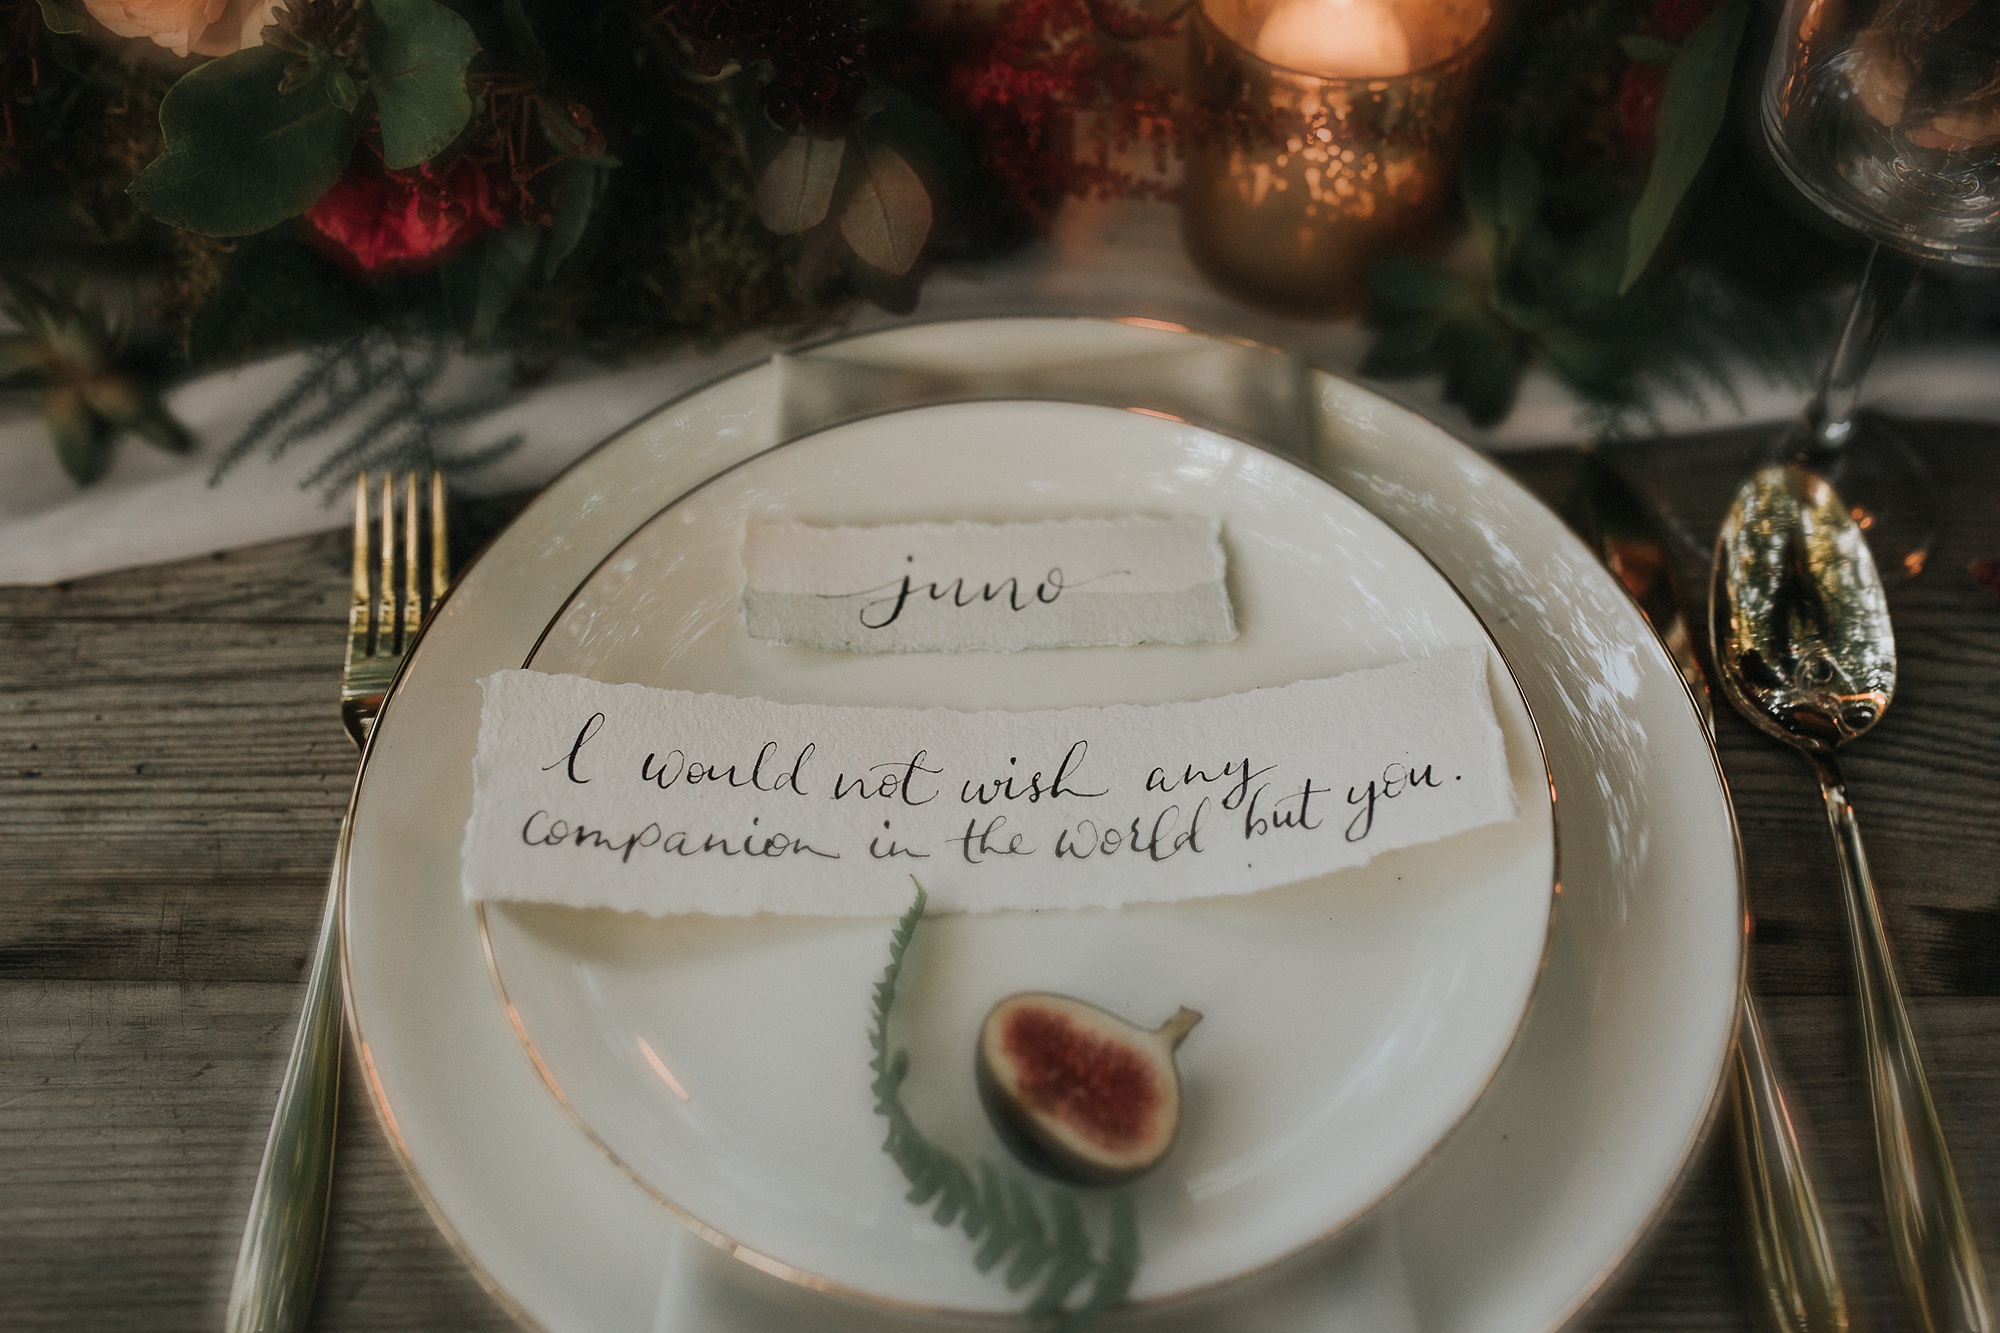 juno
I would not wish any
companion in the world but you.